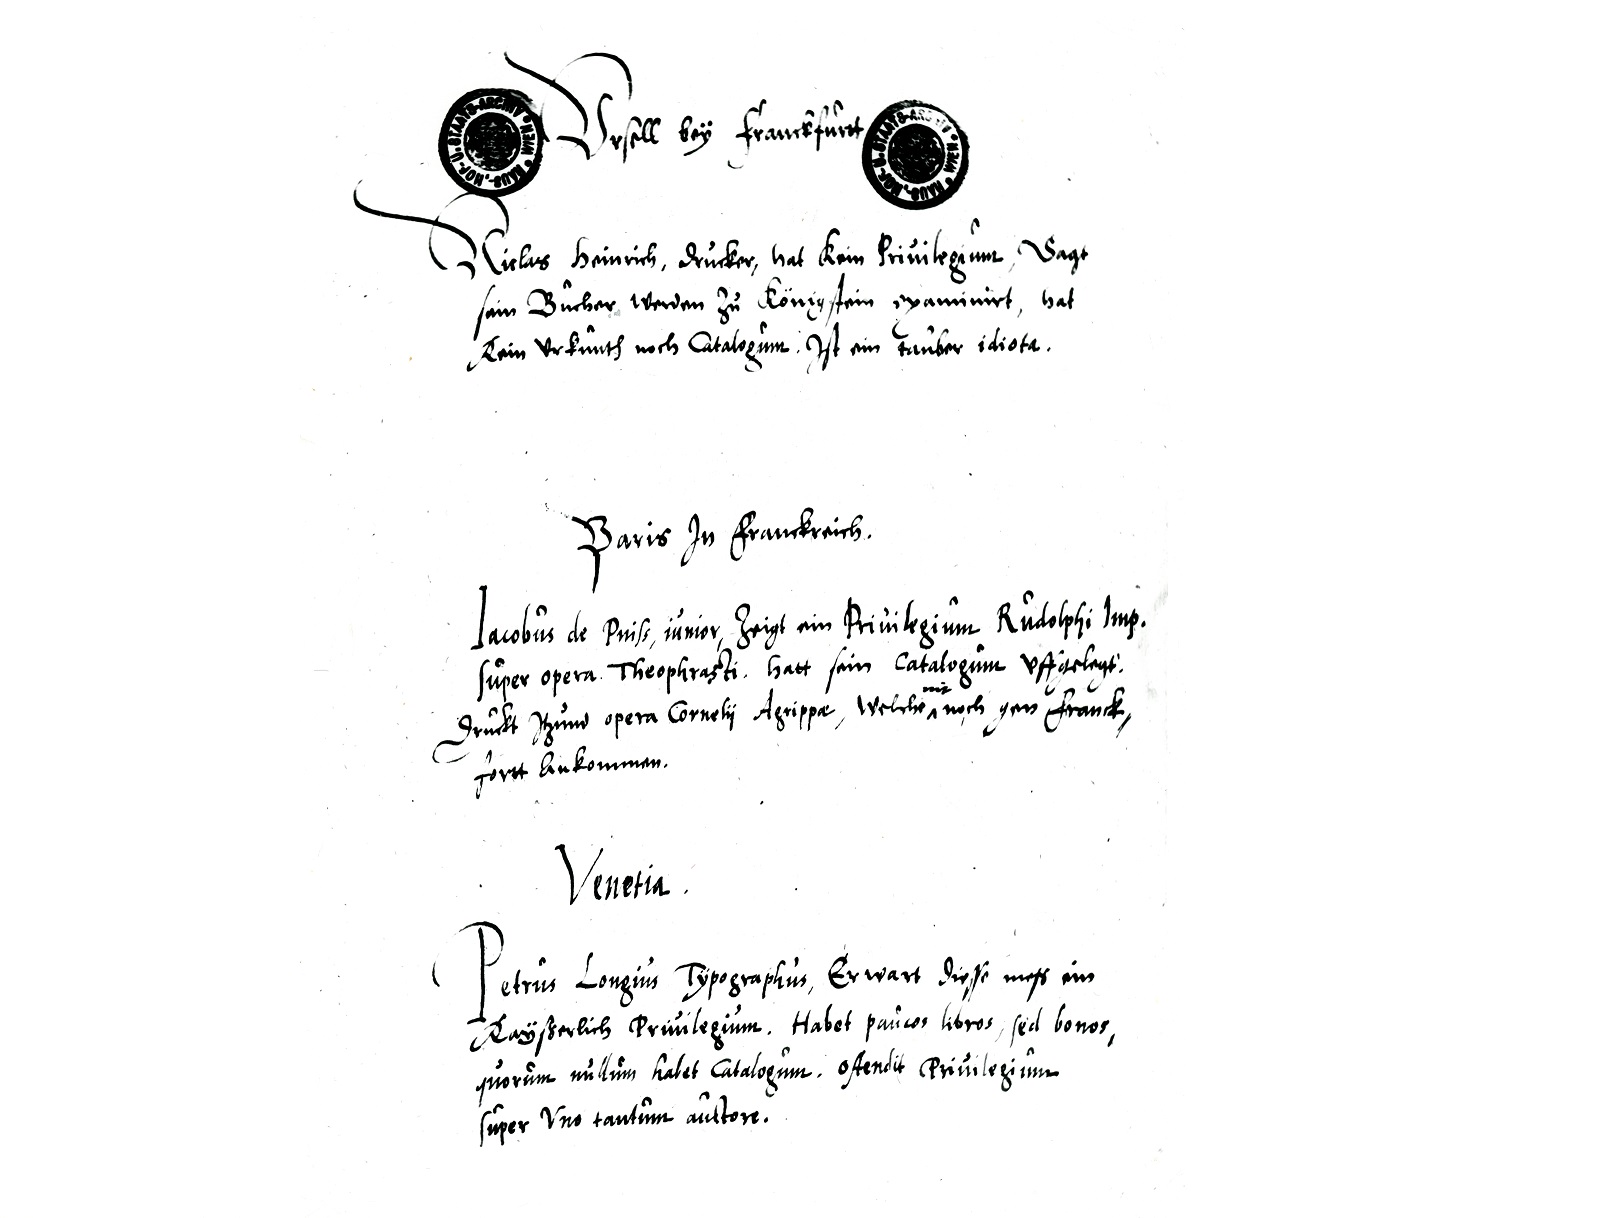 HAUS-, HOF- U. STAATS-ARCHIV WIEN
Vrsell beÿ Franckfurtt
HAUS-, HOF- U. STAATS-ARCHIV WIEN
Niclas Heinrich, drucker, hat kein Priuilegium, Sagt
sein Bücher werden zu Königstein examinirt, hat
kein Vrkunth noch Catalogum. Ist ein tauber idiota.
Paris In Franckreich.
Iacobus de Puiss, iunior, zeigt ein Priuilegium Rudolphi Imp.
super opera Theophrasti. hatt sein Catalogum vffgelegt.
druckt Itzund opera Cornelij Agrippæ, welche nit noch gen Franck,
fortt ankommen.
Venetia.
Petrus Longius Typographus, Erwart diesse mess ein
Kaÿßerlich Priuilegium. Habet paucos libros, sed bonos,
quorum nullum habet Catalogum. ostendit Priuilegium
super Vno tantum auctore.